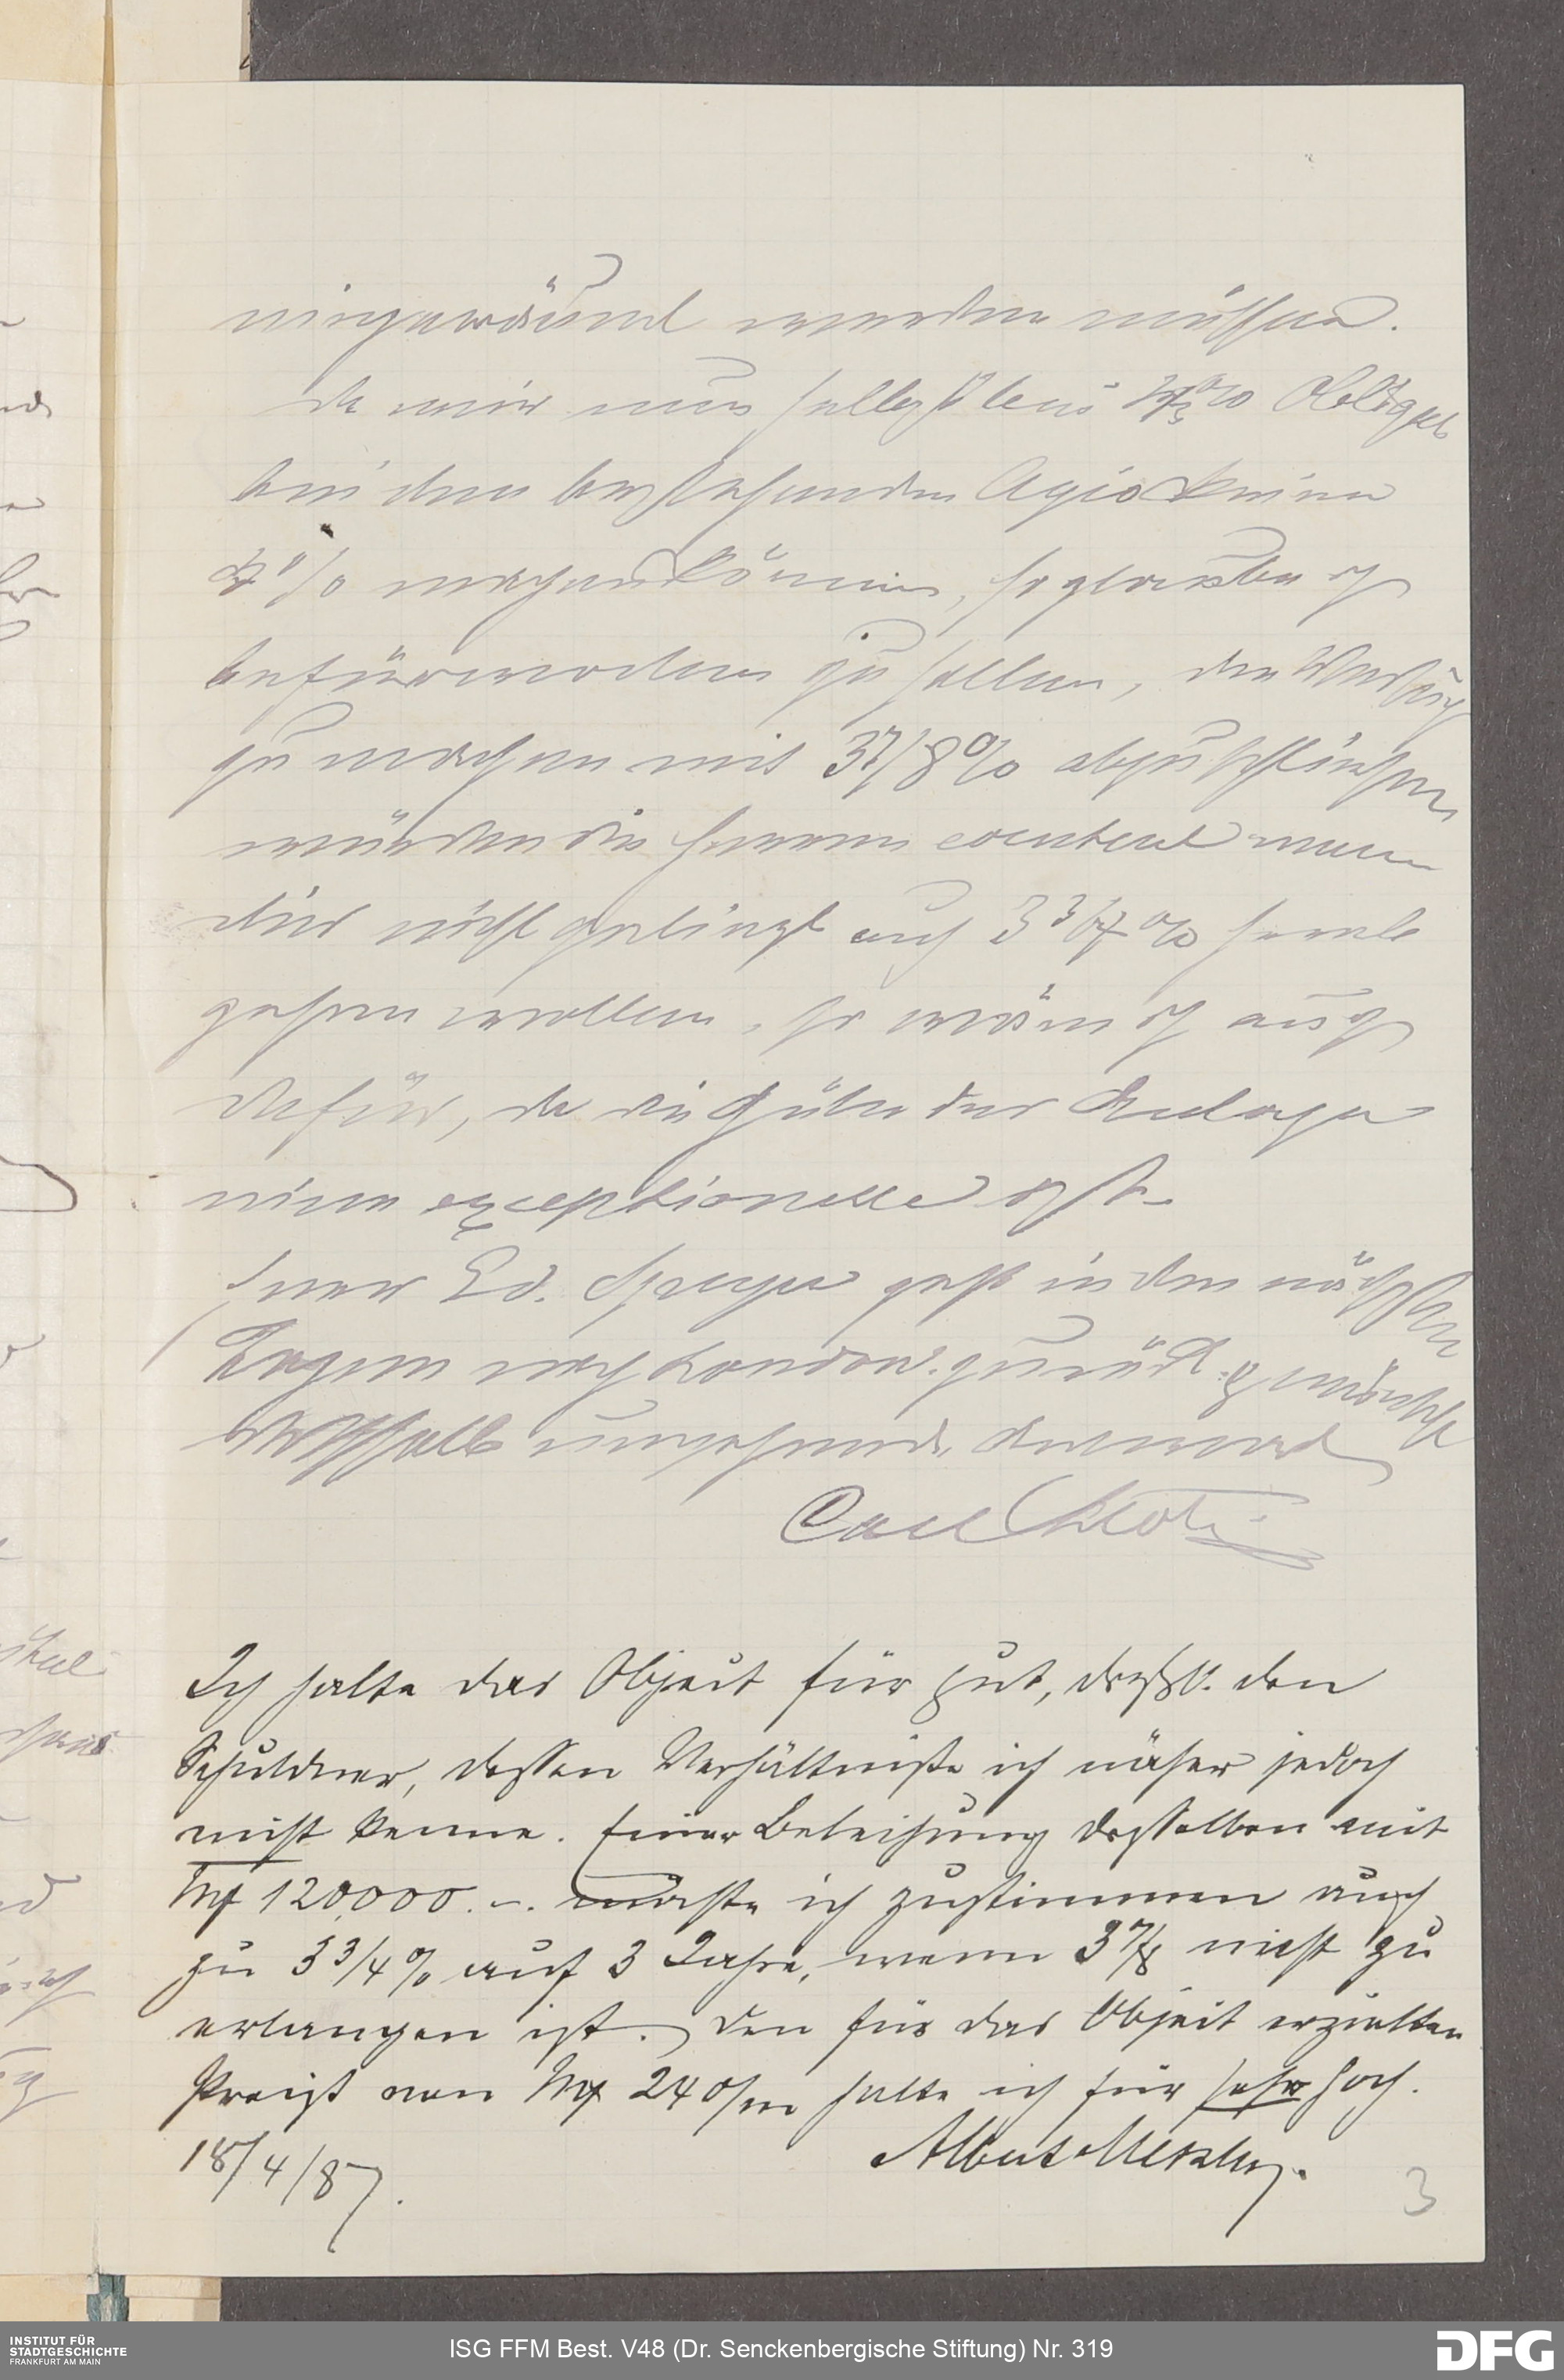 eingeräumt werden müssen.
da wir nun selbst bei 4% Obligat
bei dem bestehenden Agio keine
4% machen können, so glaube ich
befürworten zu sollen, den Versuch
zu machen mit 3 7/8 % abzuschließen
würden die Herren eventuel wenn
dies nicht gelingt auf 3 3/4 % herab
gehen wollen, so wäre ich auch
dafür, da die Güte der Anlage
eine exceptionelle ist.
Herr Ed. geht in den nächsten
Tagen nach London zurück & wünscht
deshalb umgehende Antwort
Carl
Ich halte das Object für gut, deßgl. den
Schuldner, dessen Verhältnisse ich näher jedoch
nicht kenne. Einer Beleihung desselben mit
Mk 120,000.–. möchte ich zustimmen auch
zu 3 3/4 % auf 3 Jahre, wenn 3 7/8 nicht zu
erlangen ist. Den für das Object erzielten
Preis von Mk 240/m halte ich für sehr hoch.
18/4/87. Albert Metzler.
3
INSTITUT FÜR
STADTGESCHICHTE
FRANKFURT AM MAIN
ISG FFM Best. V48 (Dr. Senckenbergische Stiftung) Nr. 319
DFG